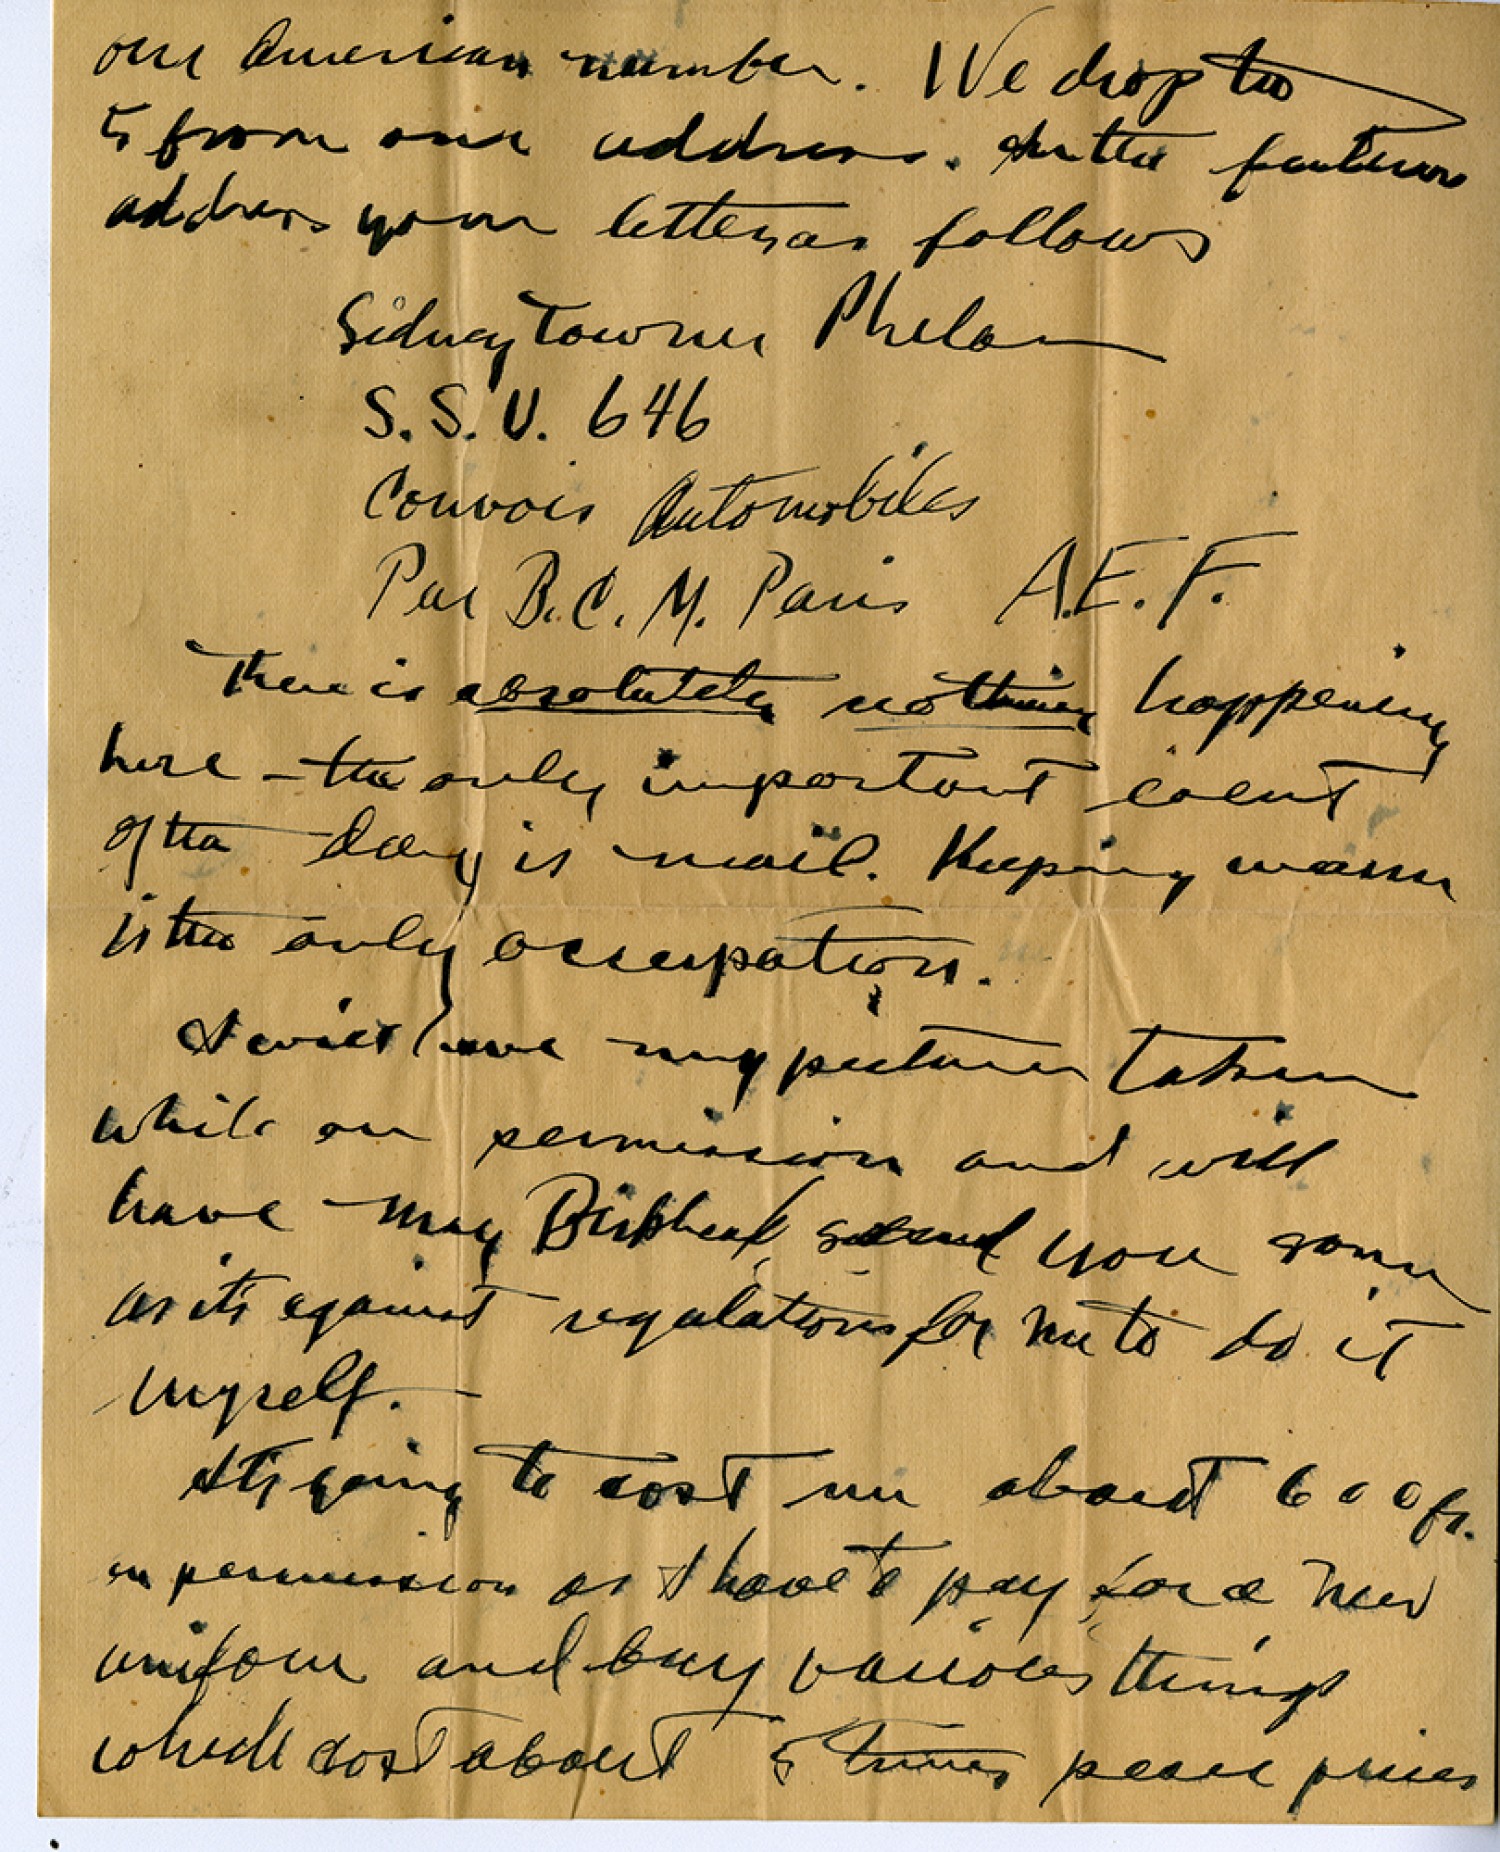 our American number. We drop the
5 from our address. In the future
address your letters as follows
Sidney Towner Phelan
S.S.U. 646
Convois Automobiles
Par B.C.M. Paris A.E.F.
There is absolutely nothing happening
here – the only important event
of the day is mail. Keeping warm
is the only occupation.
I will have my pictures taken
while on permission and will
have May Birkhead send you some
as its against regulations for me to do it
myself.
Its going to cost me about 600 fr.
on permission as I have to pay for a new
uniform and buy various things
which cost about 5 times peace prices